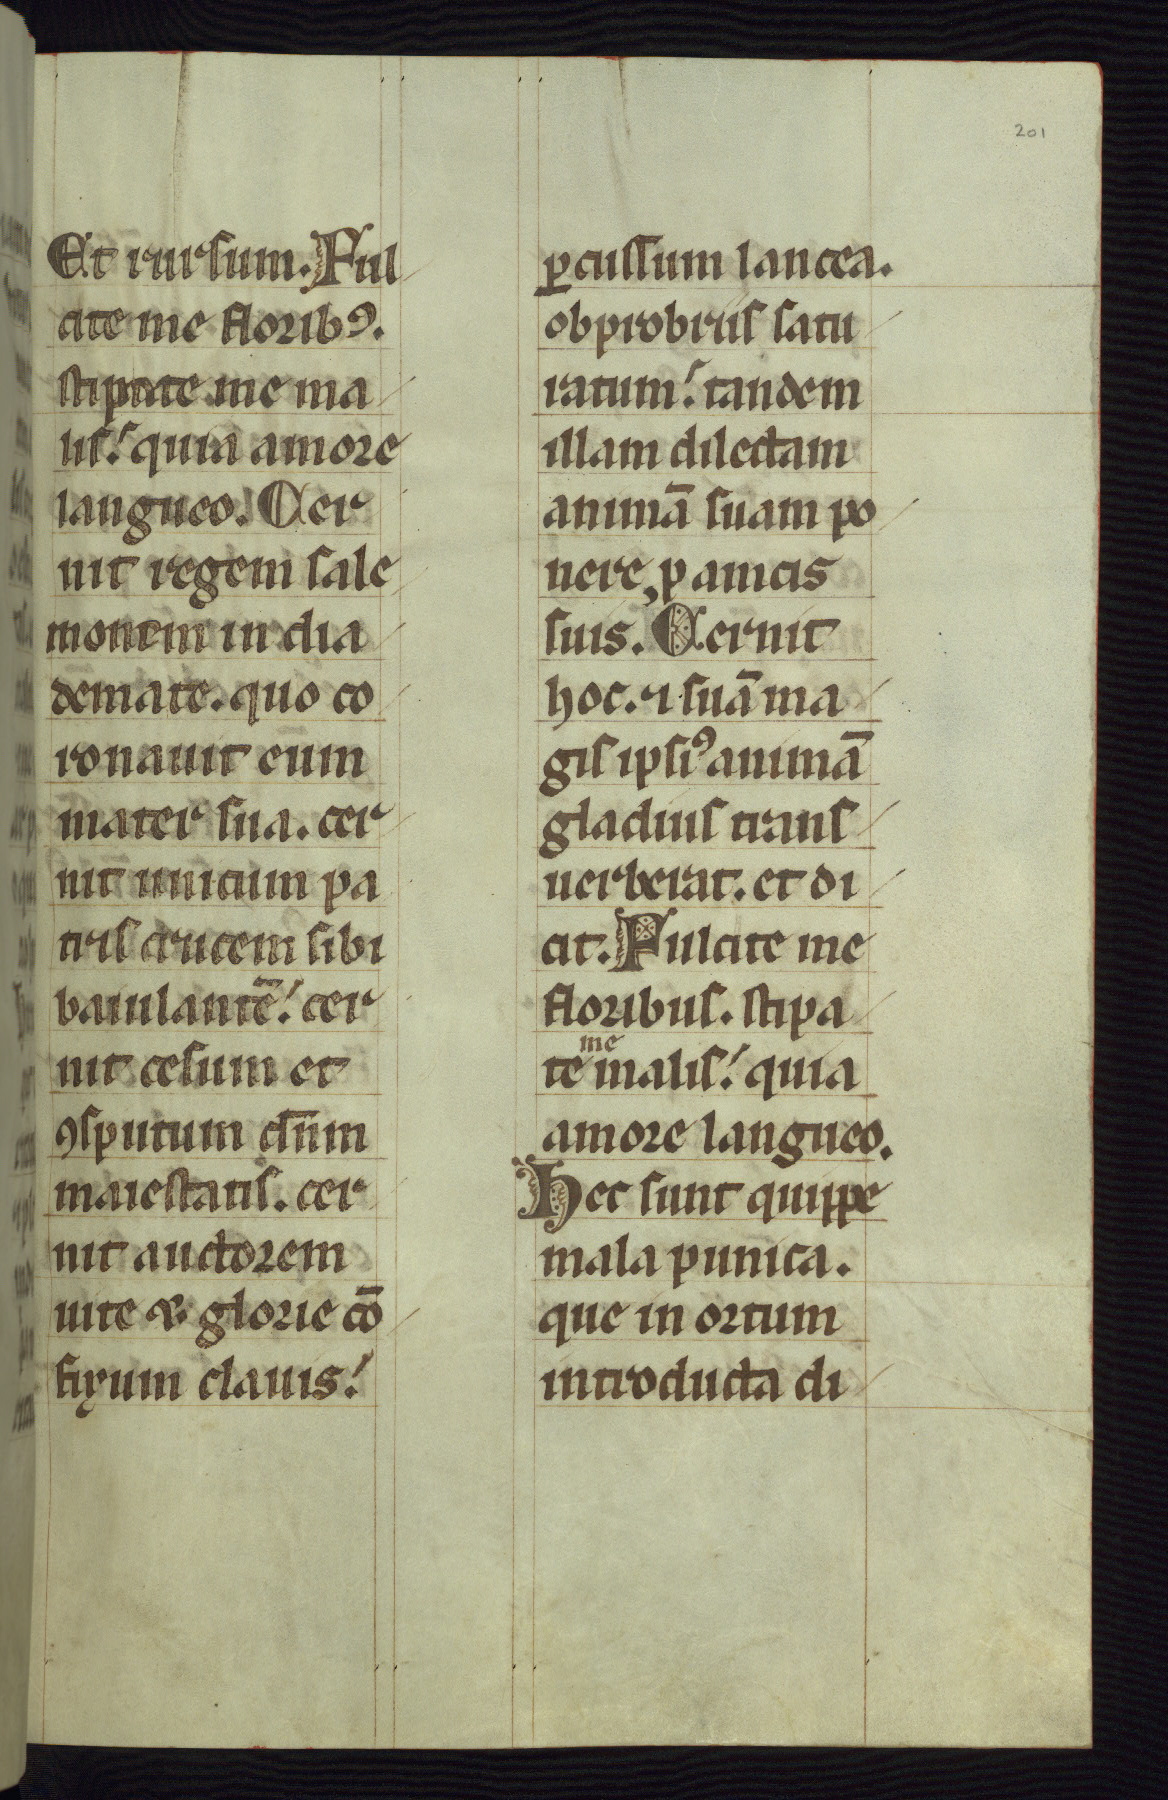 201
Et rursum. Ful
cite me floribꝯ.
stipate me ma
lis! quia amore
langueo. Cer
nit regem sale
monem in dia
demate. quo co
ronauit eum
mater sua. cer
nit unicum pa
tris crucem sibi
baiulantē! cer
nit cesum et
ꝯsputum dn̄m
maiestatis. cer
nit auctorem
uite & glorie cō
fixum clauis!
ꝑcussum lancea.
obprobriis satu
ratum! tandem
illam dilectam
animā suam po
nere ꝓ amicis
suis. Cernit
hoc. ⁊ suā ma
gis ipsiꝰ animā
gladius trans
uerberat. et di
cit. Fulcite me
floribus. stipa
te me malis! quia
amore langueo.
Hec sunt quippe
mala punica.
que in ortum
introducta di